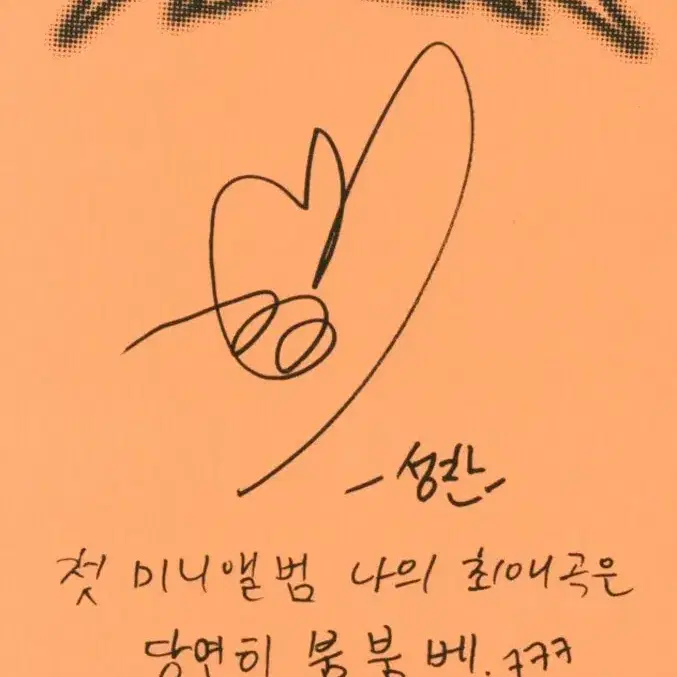 -성찬-
첫 미니앨범 나의 최애곡은
당연히 붐붐베.ㅋㅋㅋ